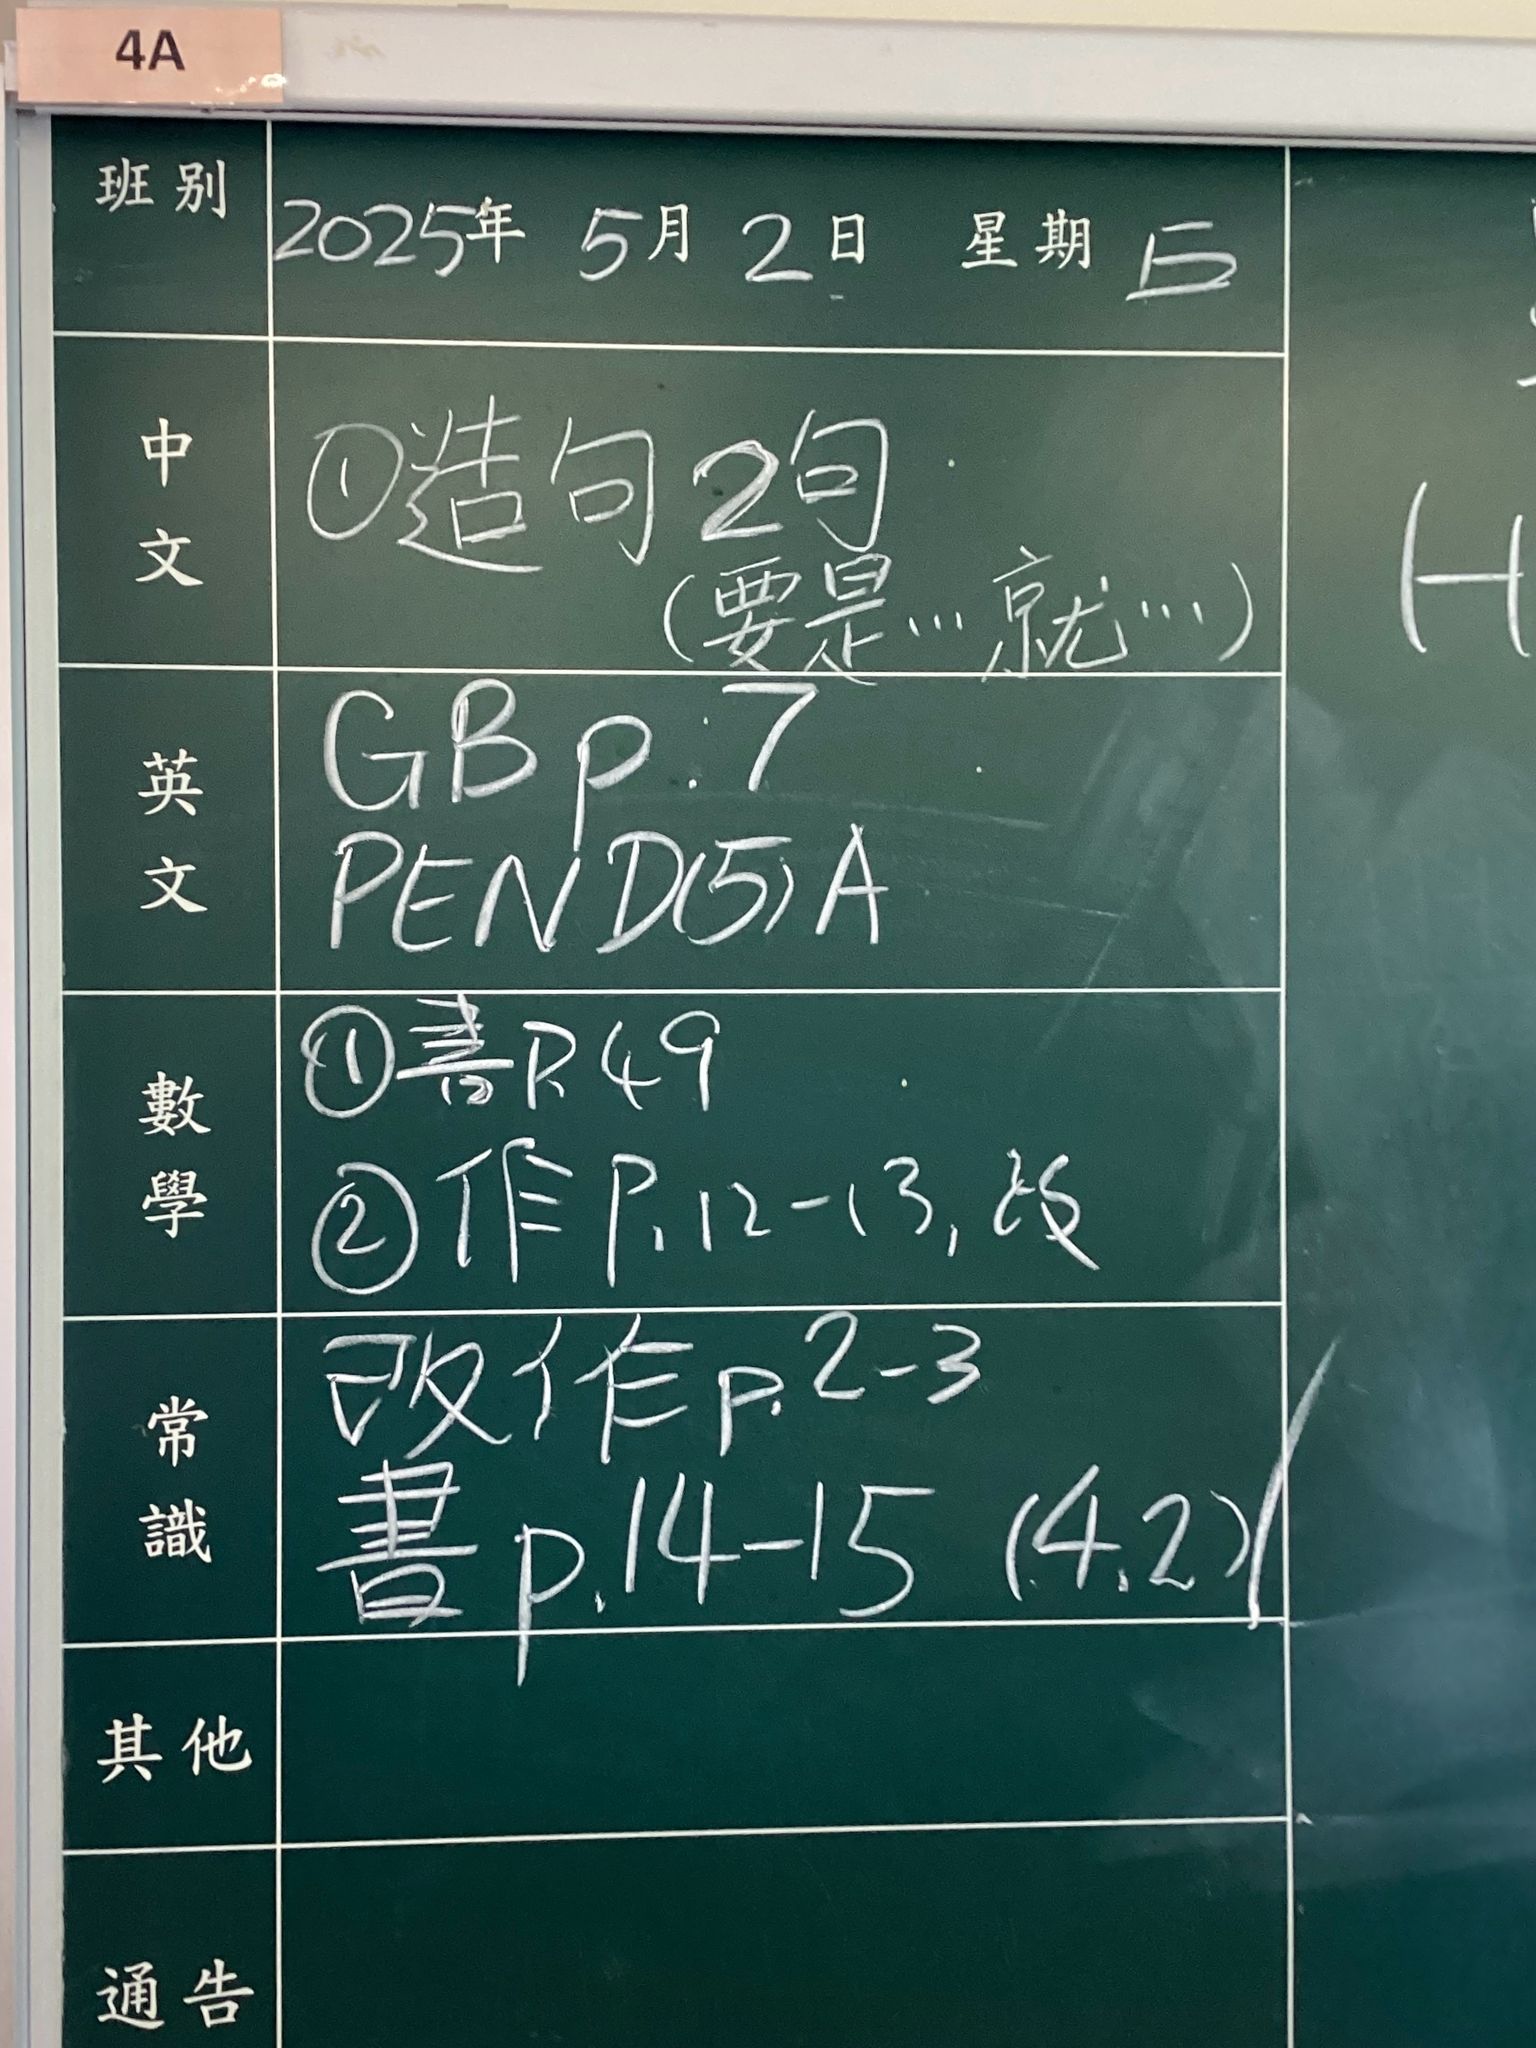 4A
班別
2025年 5月 2日 星期 五
中文
①造句2句
(要是…就…)
英文
GB p.7
PEND(5)A
數學
①書P.49
②作P.12-13,改
常識
改作p.2-3
書p.14-15 (4.2)/
其他
通告